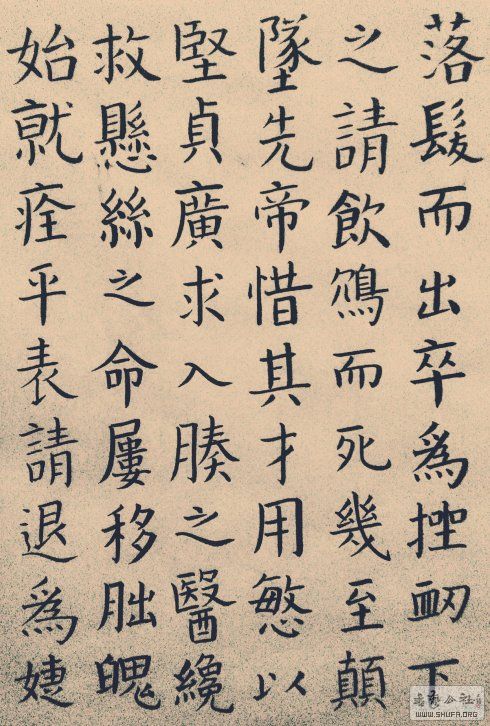 落髮而出卒爲挫衂下
之請飲鴆而死幾至顛
墜先帝惜其才用慜以
堅貞廣求入腠之醫纔
救懸絲之命屢移朏魄
始就痊平表請退爲婕
WWW.SHUFA.ORG